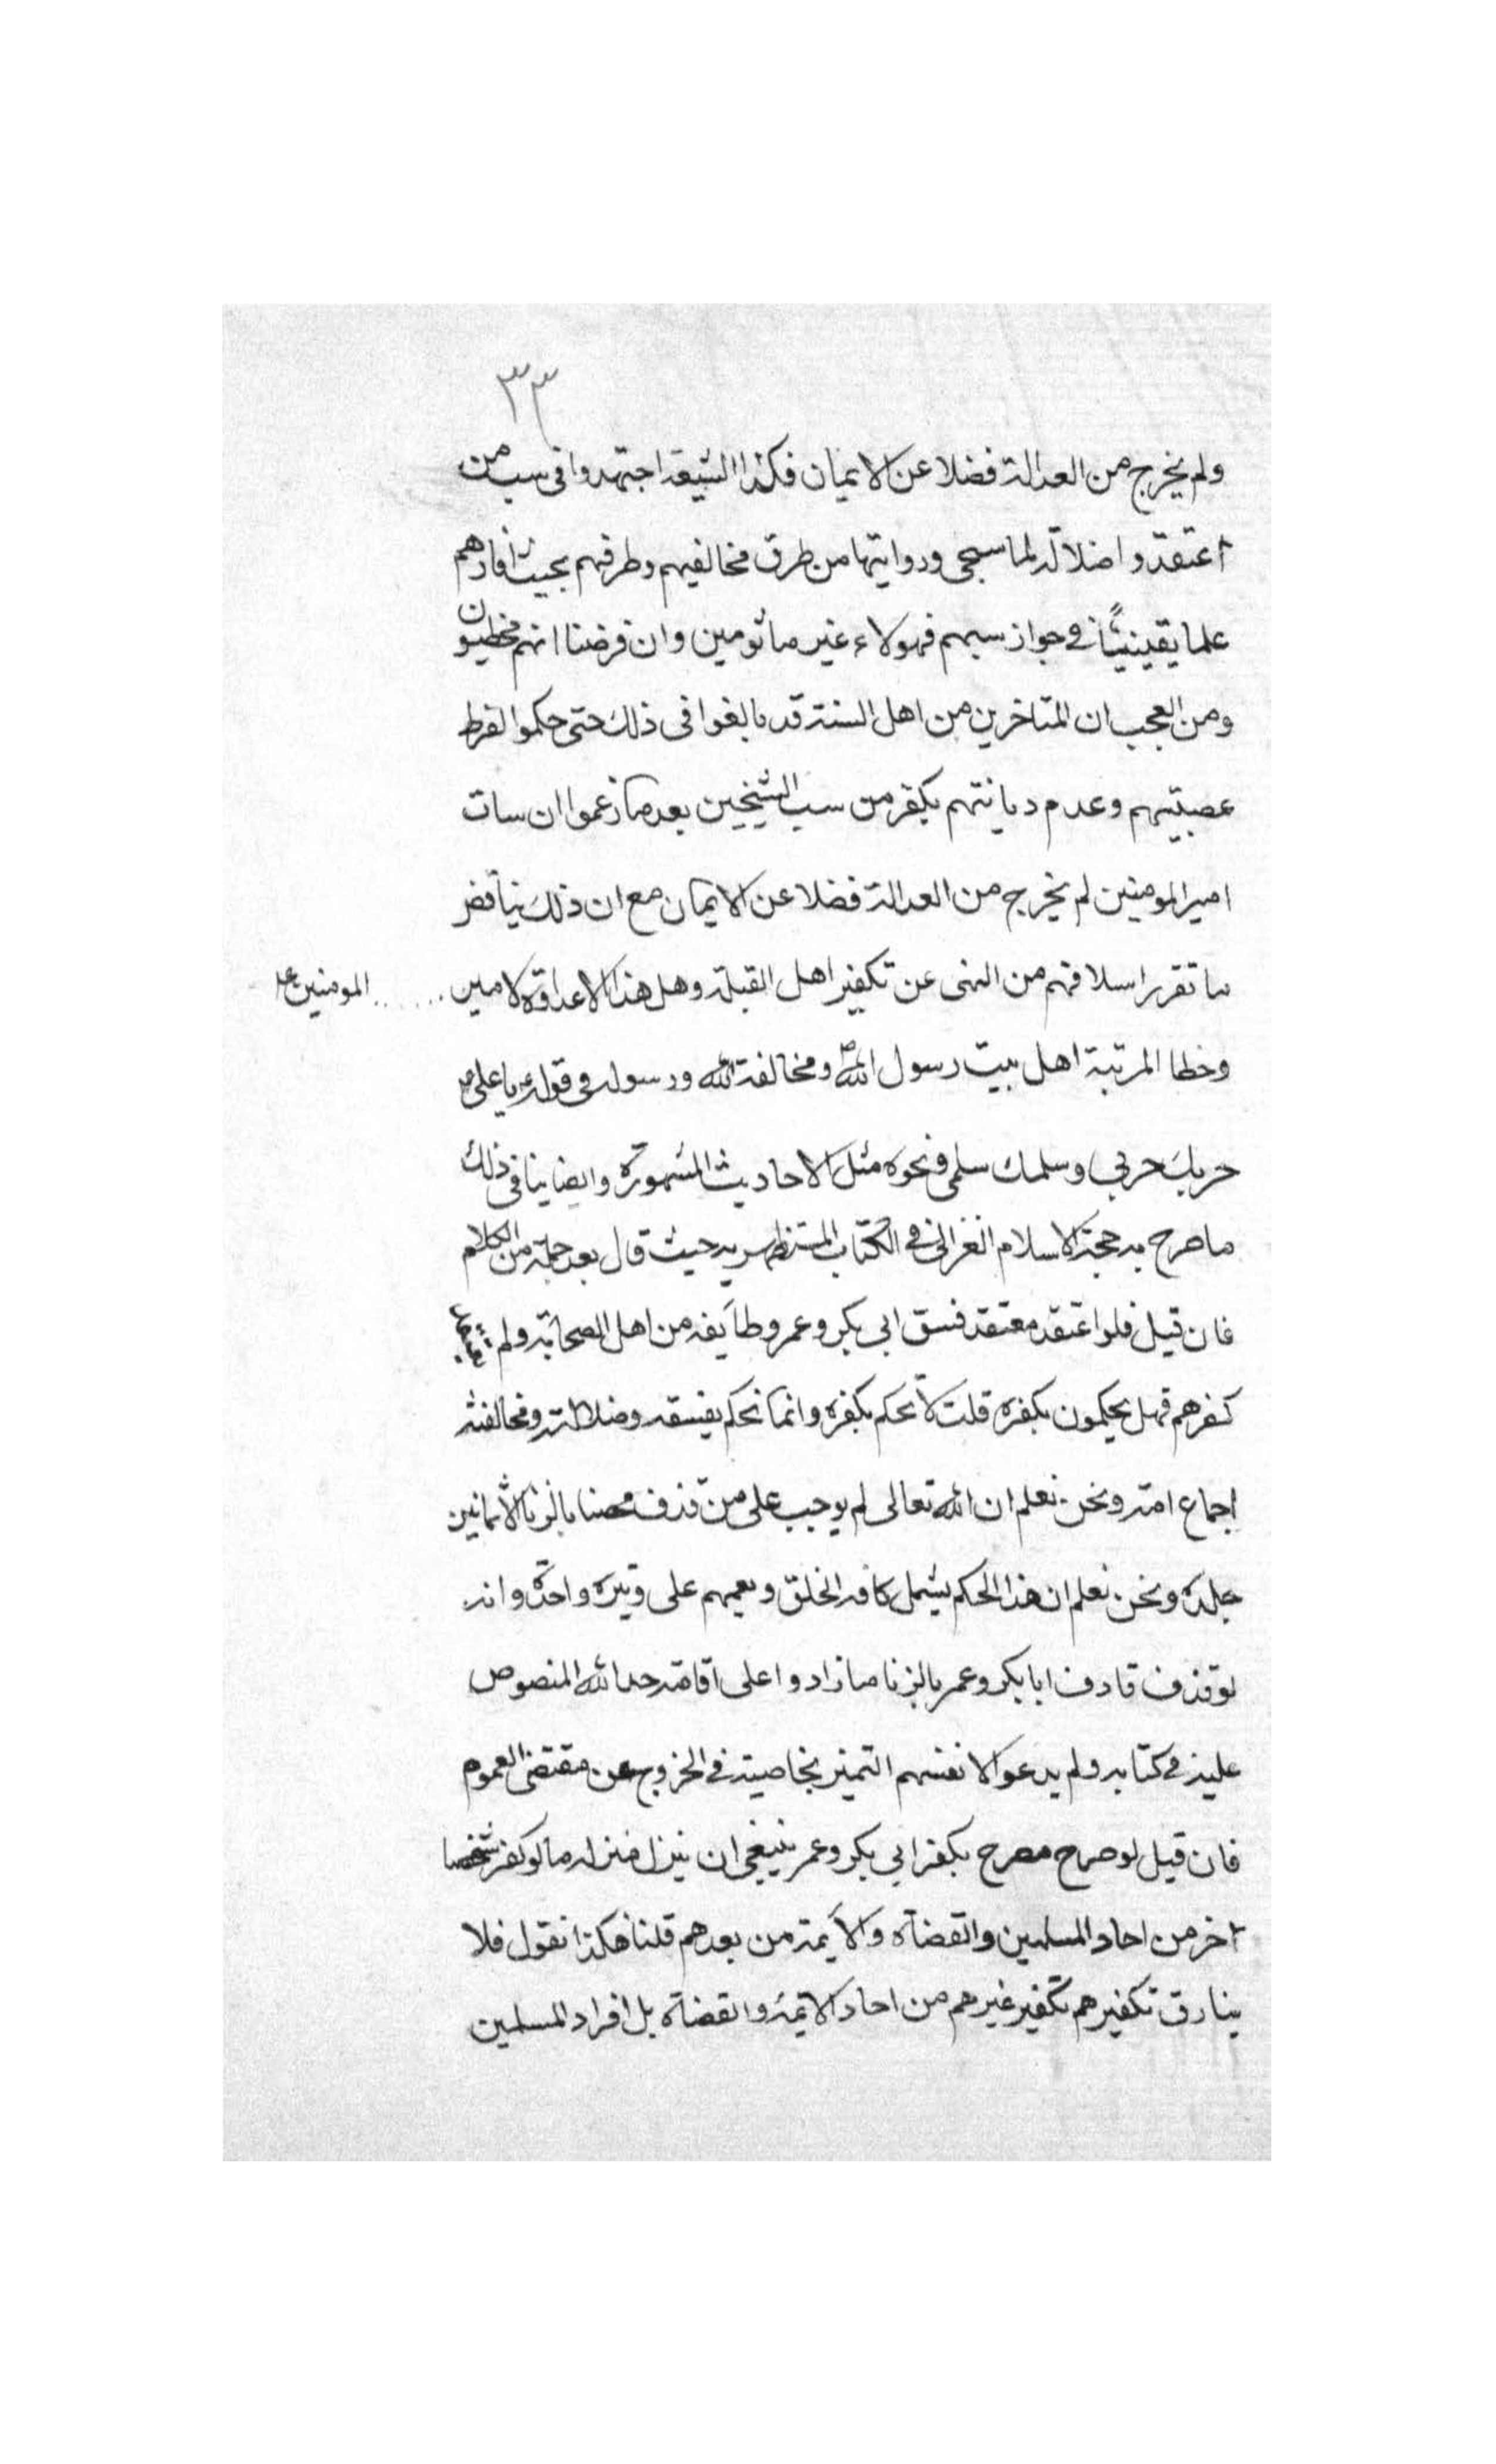 ٣٣
ولم يخرج من العدالة فضلا عن الايمان فكذا الشيعة اجتهدوا في سب من
اعتقدوا ضلالته لما سيجي وروايتها من طرق مخالفيهم وطرقهم بحيث افادهم
علما يقينيًا في جواز سبهم فهولاء غير ماثومين وان فرضنا انهم مخطيون
ومن العجب ان المتاخرين من اهل السنة قد بالغوا في ذلك حتى حكموا لفرط
عصبيتهم وعدم ديانتهم بكفر من سب الشيخين بعد ما زعموا ان ساب
امير المومنين لم يخرج من العدالة فضلا عن الايمان مع ان ذلك يناقض
ما تقرر اسلافهم من النهى عن تكفير اهل القبلة وهل هذا الا عداوة لامير ...... المومنين ع
وخطا المرتبة اهل بيت رسول الله ص ومخالفة الله ورسوله في قوله يا على
حربك حربي وسلمك سلمي ونحوه مثل الاحاديث المشهورة وايضا ينافى ذلك
ما صرح به حجة الاسلام الغزالى في الكتاب المستظهرية حيث قال بعد جملة من الكلام
فان قيل فلو اعتقد معتقد فسق ابى بكر وعمر وطايفه من اهل الصحابة ولم يعتقد
كفرهم فهل يحكمون بكفره قلت لا نحكم بكفره وانما نحكم بفسقه وضلالته ومخالفته
اجماع امته ونحن نعلم ان الله تعالى لم يوجب على من قذف محصنا بالزنا الا ثمانين
جلدة ونحن نعلم ان هذا الحكم يشمل كافه الخلق ويعمهم على وتيرة واحدة وانه
لو قذف قاذف ابا بكر وعمر بالزنا ما زادوا على اقامة حد الله المنصوص
عليه في كتابه ولم يدعوا لا نفسهم التميز بخاصية في الخروج عن مقتضى العموم
فان قيل لو صرح مصرح بكفر ابى بكر وعمر ينبغي ان ينزل منزله ما لو كفر شخصا
آخر من احاد المسلمين والقضاة والايمة من بعدهم قلنا هكذا نقول فلا
يفارق تكفيرهم تكفير غيرهم من احاد الايمة والقضاة بل افراد المسلمين